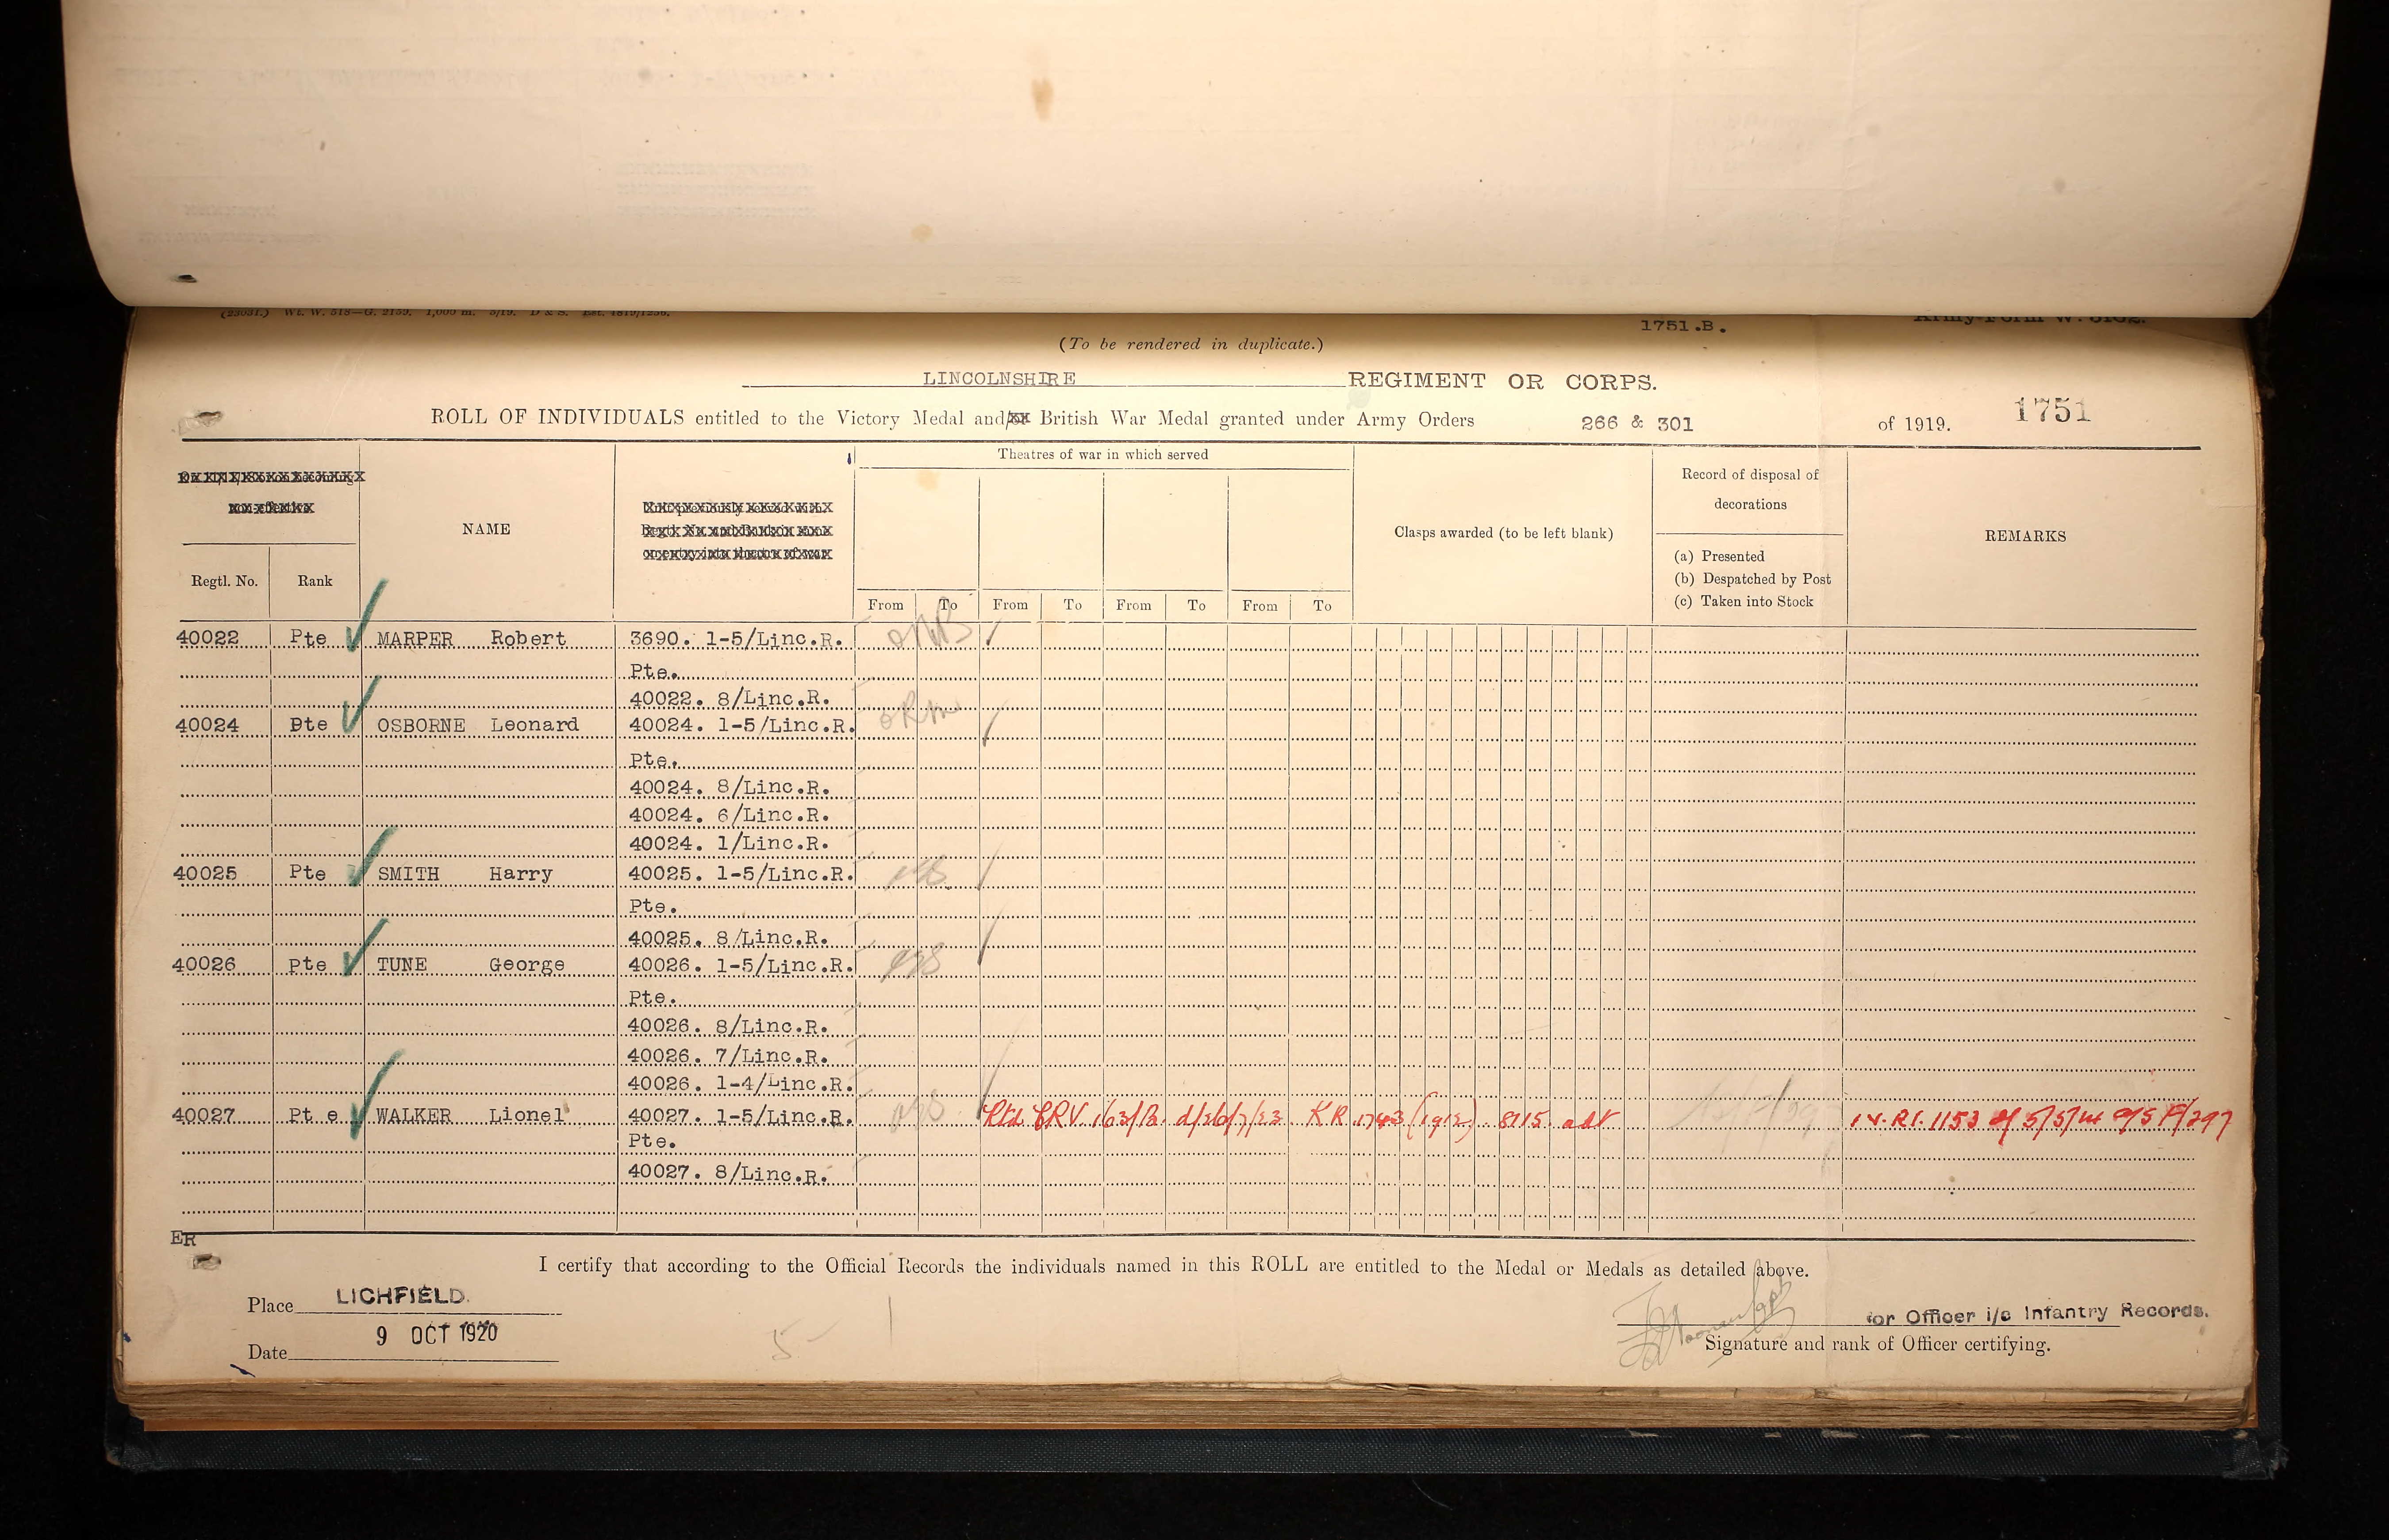 (23031.) Wt. W. 518—G. 2159. 1,000 m. 5/19. D & S.
1751.B.
(To be rendered in duplicate.)
LINCOLNSHIRE REGIMENT OR CORPS.
ROLL OF INDIVIDUALS entitled to the Victory Medal and/ British War Medal granted under Army Orders 266 & 301 of 1919. 1751
Theatres of war in which served
Record of disposal of
decorations
NAME
Clasps awarded (to be left blank)
REMARKS
(a) Presented
(b) Despatched by Post
(c) Taken into Stock
Regtl. No. Rank
From To From To From To From To
40022 Pte MARPER Robert 3690. 1-5/Linc.R.
Pte.
40022. 8/Linc.R.
40024 Pte OSBORNE Leonard 40024. 1-5/Linc.R.
Pte.
40024. 8/Linc.R.
40024. 6/Linc.R.
40024. 1/Linc.R.
40025 Pte SMITH Harry 40025. 1-5/Linc.R.
Pte.
40025. 8/Linc.R.
40026 pte TUNE George 40026. 1-5/Linc.R.
Pte.
40026. 8/Linc.R.
40026. 7/Linc.R.
40026. 1-4/Linc.R.
40027 Pt e WALKER Lionel 40027. 1-5/Linc.R. Rtd 163/B. KR 1743 (1912) 8115 adt 1153
Pte.
40027. 8/Linc.R.
ER
I certify that according to the Official Records the individuals named in this ROLL are entitled to the Medal or Medals as detailed above.
Place LICHFIELD.
for Officer i/c Infantry Records.
9 OCT 1920
Date
Signature and rank of Officer certifying.